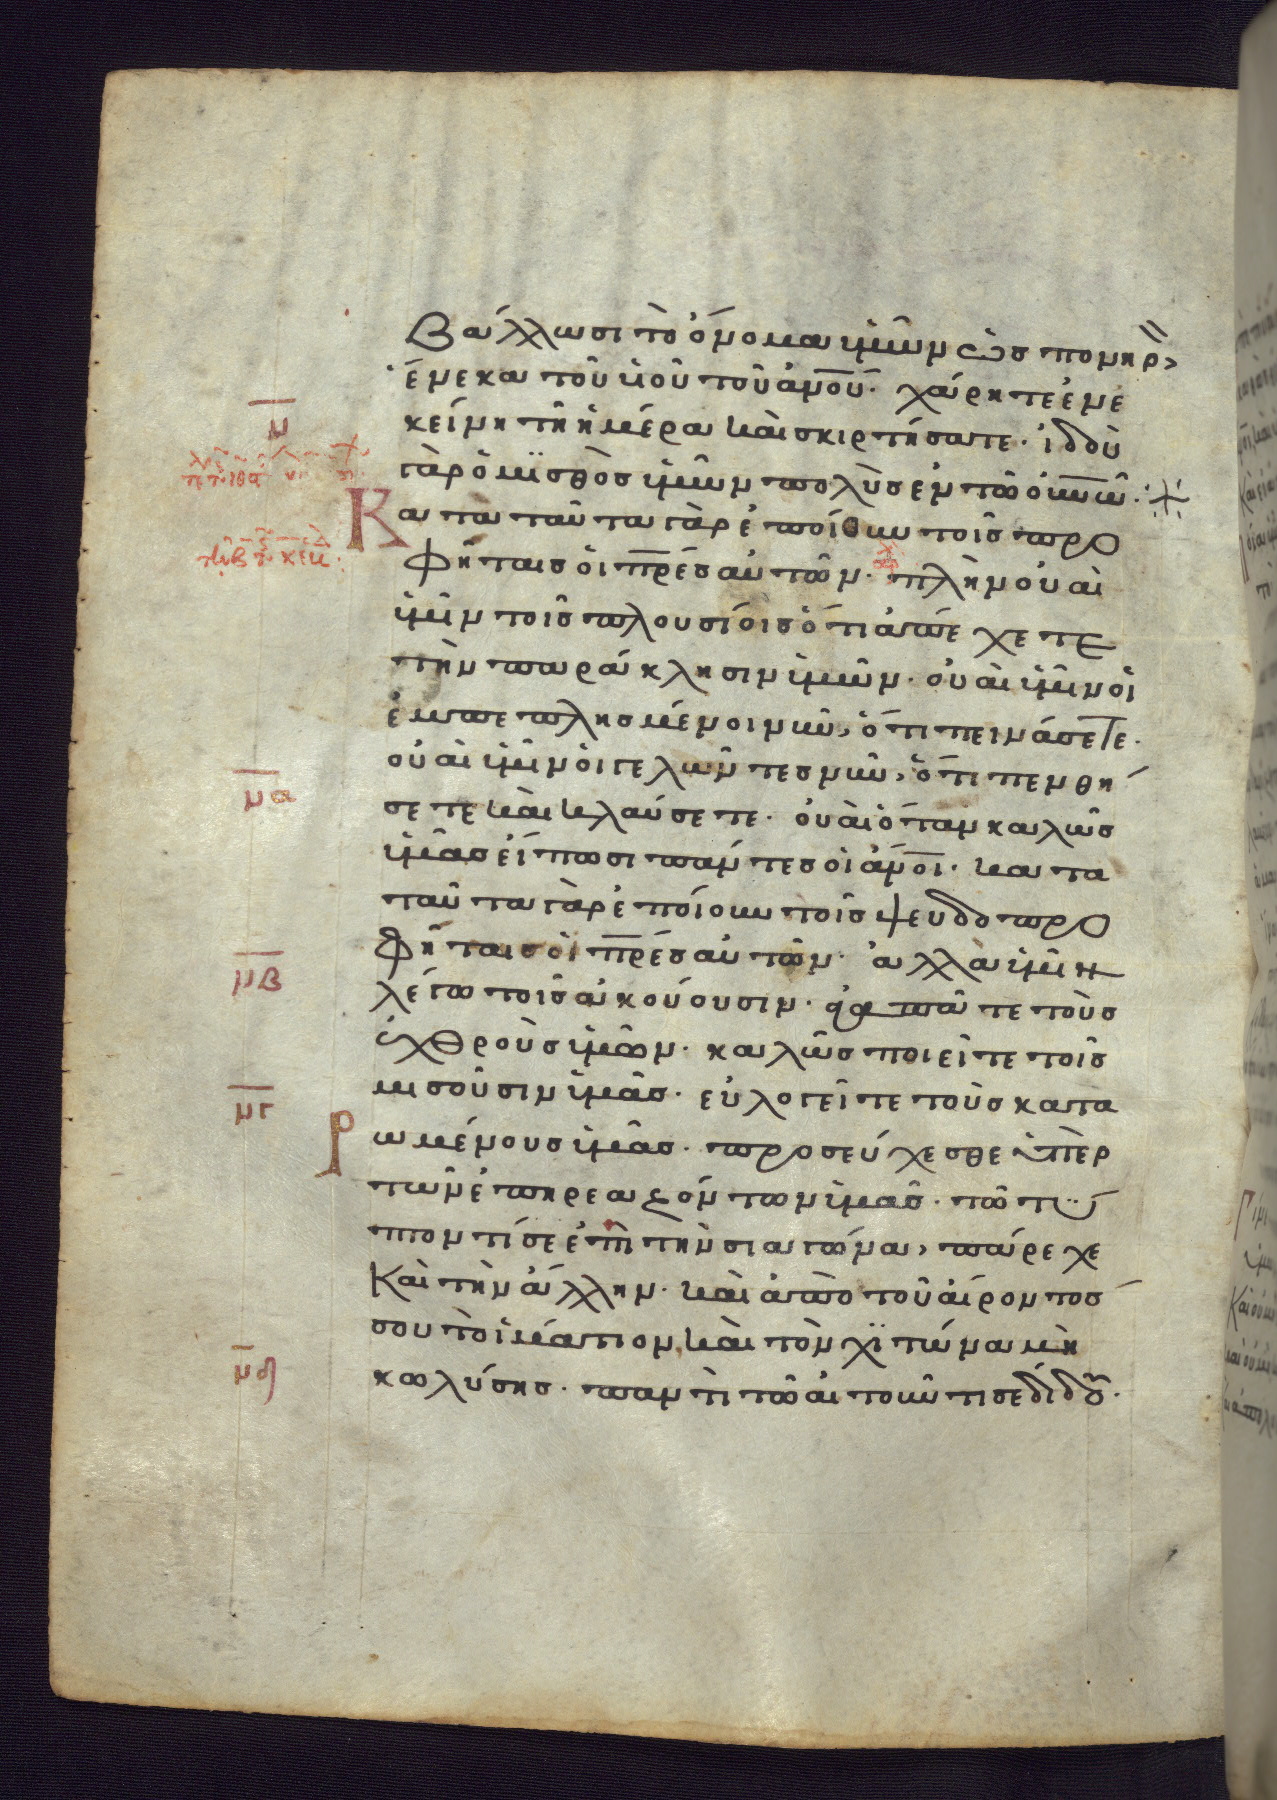 βάλλωσι τὸ ὄνομα ὑμῶν ὡς πονηρ
ἕνεκα τοῦ υἱοῦ τοῦ ἀνου. χάρητε ἐνε
κείνη τῆ ἡμέρα καὶ σκιρτήσατε. ἰδοὺ
γὰρ ὁ μϊσθὸς ὑμῶν πολὺς ἐν τῶ οὐνω.
Κατὰ ταῦτα γὰρ ἐποίουν τοῖς προ
φήταις οἱ πρες αὐτῶν. πλὴν οὐαὶ
ὑμῖν τοῖς πλουσίοις ὅτι ἀπέχετε
τὴν παράκλησιν ὑμῶν. οὐαὶ ὑμῖν οἱ
ἐμπεπλησμένοι νῦν, ὅτι πεινάσετε.
οὐαὶ ὑμῖν οἱ γελῶντες νῦν, ὅτι πενθή
σετε καὶ κλαύσετε. οὐαὶ ὅταν καλῶς
ὑμᾶς εἴπωσι πάντες οἱ ἀνοι. κατὰ
ταῦτα γὰρ ἐποίουν τοῖς ψευδοπρο
φήταις οἱ πρες αὐτῶν. ἀλλὰ ὑμῖν
λέγω τοῖς ἀκούουσιν. ἀγαπᾶτε τοὺς
ἐχθροὺς ὑμῶν. καλῶς ποιεῖτε τοῖς
μισοῦσιν ὑμᾶς. εὐλογεῖτε τοὺς κατα
ρωμένους ὑμᾶς. προσεύχεσθε ὑπὲρ
τῶν ἐπηρεαζόντων ὑμᾶς. τῶ τύ
πτοντί σε ἐπὶ τὴν σιαγόνα, πάρεχε
καὶ τὴν ἄλλην. καὶ ἀπὸ τοῦ αἴροντός
σου τὸ ἱμάτιον, καὶ τὸν χϊτώνα μὴ
κωλύσης. παντὶ τῶ αἰτοῦντι σε δίδου.
μ
μα
μβ
μγ
μδ